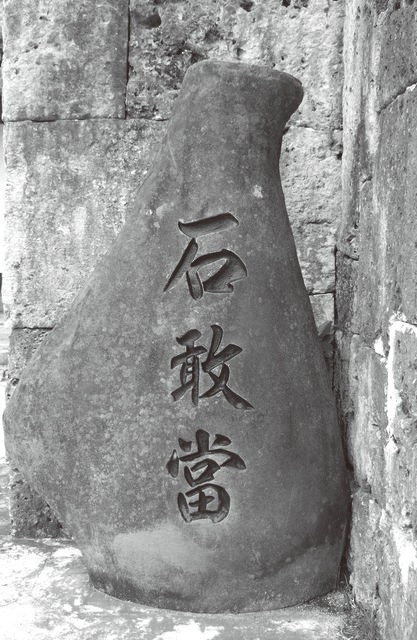 石敢當